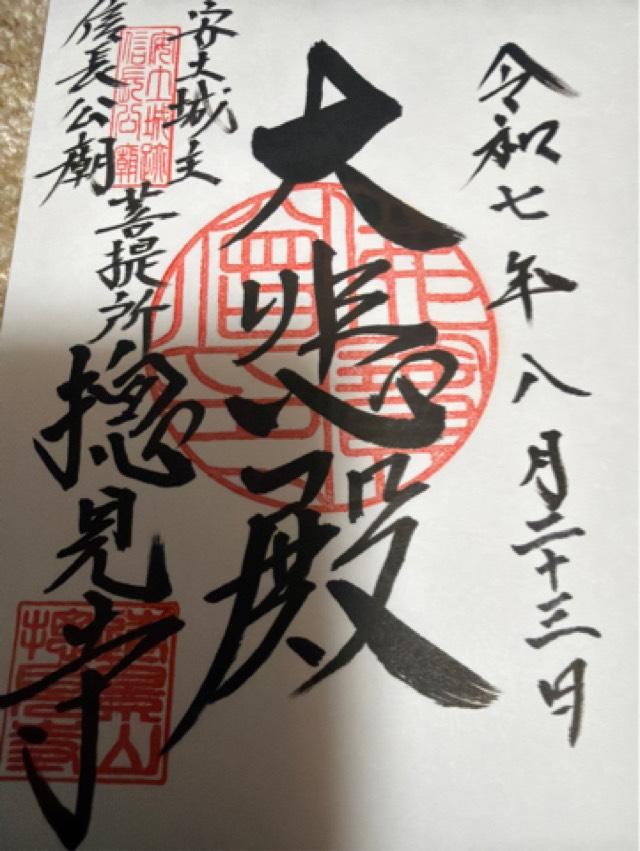 令和七年八月二十三日
大悲殿
安土城主
信長公廟
菩提所
摠見寺
安土城跡
信長公廟
佛法僧寳
摠見寺